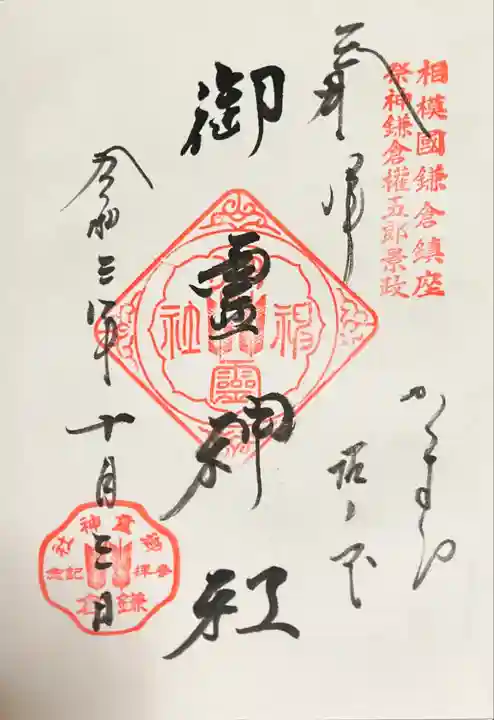 相模國鎌倉鎮座
祭神鎌倉權五郎景政
かまくら
奉拝
坂ノ下
御靈神社
令和三年十月三日
御靈神社
御靈神社
参拝記念
鎌倉